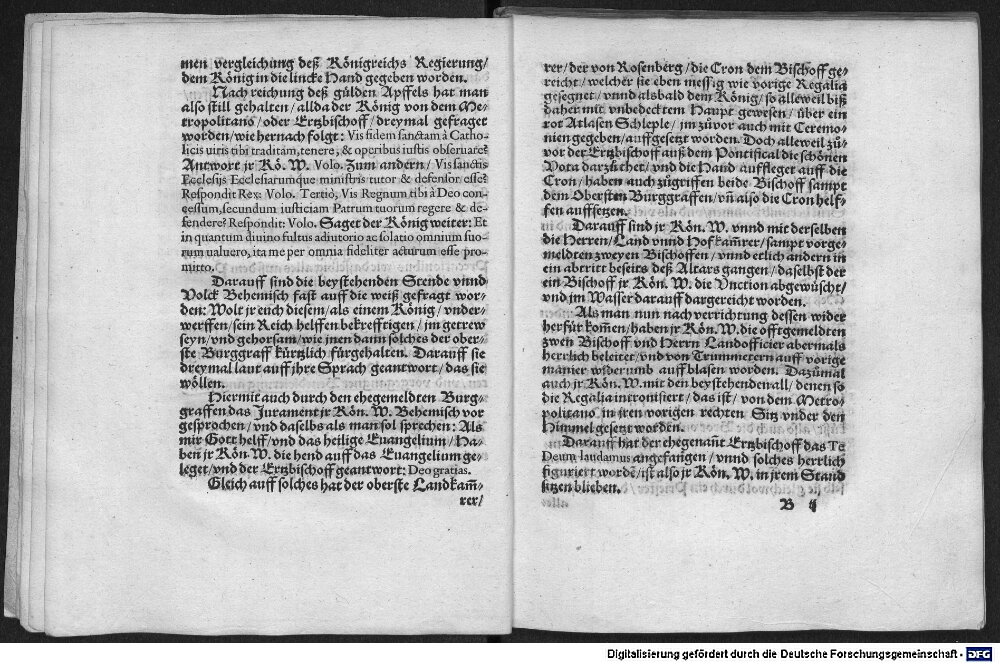 men vergleichung deß Königreichs Regierung/
dem König in die lincke Hand gegeben worden.
Nach reichung deß gülden Apffels hat man
also still gehalten/allda der König von dem Me-
tropolitano/oder Ertzbischoff/dreymal gefraget
worden/wie hernach folgt: Vis fidem sanctam à Catho-
licis uiris tibi traditam, tenere, & operibus iustis obseruare?
Antwort jr Kö. W. Volo. Zum andern/Vis sanctis
Ecclesijs Ecclesiarumque ministris tutor & defensor esse?
Respondit Rex: Volo. Tertiò, Vis Regnum tibi à Deo con-
cessum, secundum iusticiam Patrum tuorum regere & de-
fendere? Respondit: Volo. Saget der König weiter: Et
in quantum diuino fultus adiutorio ac solatio omnium suo-
rum ualuero, ita me per omnia fideliter acturum esse pro-
mitto.
Darauff sind die beystehenden Stende vnnd
Volck Behemisch fast auff die weiß gefragt wor-
den: Wolt jr euch diesem/als einem König/vnder-
werffen/sein Reich helffen bekrefftigen/jm getrew
seyn/vnd gehorsam/wie jnen dann solches der ober-
ste Burggraff kürtzlich fürgehalten. Darauff sie
dreymal laut auff jhre Sprach geantwort/das sie
wöllen.
Hiermit auch durch den ehegemeldten Burg-
graffen das Jurament jr Kön. W. Behemisch vor
gesprochen/vnd daselbs als man sol sprechen: Als
mir Gott helff/vnd das heilige Euangelium/Ha-
ben jr Kön. W. die hend auff das Euangelium ge-
leget/vnd der Ertzbischoff geantwort: Deo gratias.
Gleich auff solches hat der oberste Landkam̃-
rer/
rer/der von Rosenberg/die Cron dem Bischoff ge-
reicht/welcher sie eben messig wie vorige Regalia
gesegnet/vnnd alsbald dem König/so alleweil biß
daher mit vnbedecktem Haupt gewesen/über ein
rot Atlasen Schleple/jm züvor auch mit Ceremo-
nien gegeben/auffgesetzt worden. Doch alleweil zü-
vor der Ertzbischoff auß dem Pontifical die schönen
Vota darzü thet/vnd die Hand auffleger auff die
Cron/haben auch zügriffen beide Bischoff sampt
dem Obersten Burggraffen/vñ also die Cron helf-
fen auffsetzen.
Darauff sind jr Kön. W. vnnd mit derselben
die Herren/Land vnnd Hofkam̃rer/sampt vorge-
meldten zweyen Bischoffen/vnnd etlich andern in
ein abtritt beseits deß Altars gangen/daselbst der
ein Bischoff jr Kön. W. die Vnction abgewüscht/
vnd jm Wasser darauff dargereicht worden.
Als man nun nach verrichtung dessen wider
herfür kom̃en/haben jr Kön. W. die offtgemeldten
zwen Bischoff vnd Herrn Landofficier abermals
herrlich beleitet/vnd von Trummetern auff vorige
manier widerumb auff blasen worden. Dazümal
auch jr Kön. W. mit den beystehenden all/denen so
die Regalia introntsiert/das ist/von dem Metro-
politano in jren vorigen rechten Sitz vnder den
Himmel gesetzt worden.
Darauff hat der ehegenañt Ertzbischoff das Te
Deum laudamus angefangen/vnnd solches herrlich
figuriert wordẽ/ist also jr Kön. W. in jrem Stand
sitzen blieben.
B ij
Digitalisierung gefördert durch die Deutsche Forschungsgemeinschaft - DFG